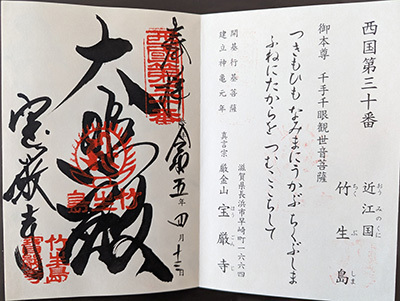 西国第三十番
近江国 おうみのくに
竹生島 ちくぶしま
御本尊 千手千眼観世音菩薩
つきもひも なみまにうかぶ ちくぶしま
ふねにたからを つむここちして
開基 行基菩薩
建立 神亀元年
滋賀県長浜市早崎町一六六四
真言宗 厳金山 宝厳寺 ほうごんじ
奉拝 令和五年四月十三日
大悲殿
宝厳寺
竹生島
竹生島